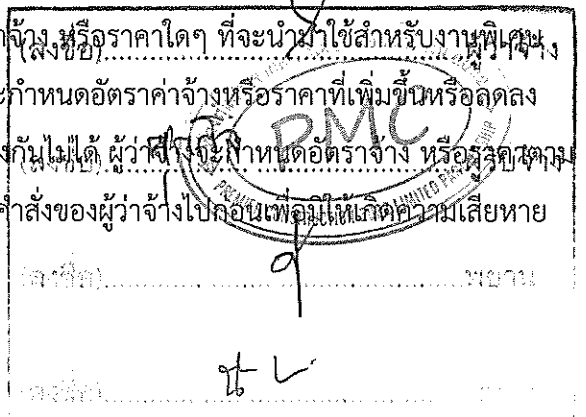 าจ้าง หรือราคาใดๆ ที่จะนำมาใช้สำหรับงานพิเศษ
(ลงชื่อ)..............................ผู้ว่าจ้าง
ะกำหนดอัตราค่าจ้างหรือราคาที่เพิ่มขึ้นหรือลดลง
PMC
งกันไม่ได้ ผู้ว่าจ้างจะกำหนดอัตราจ้าง หรือราคาตาม
(ลงชื่อ)..............................รับจ้าง
คำสั่งของผู้ว่าจ้างไปก่อนเพื่อมิให้เกิดความเสียหาย
(ลงชื่อ)..............................พยาน
(ลงชื่อ)..............................